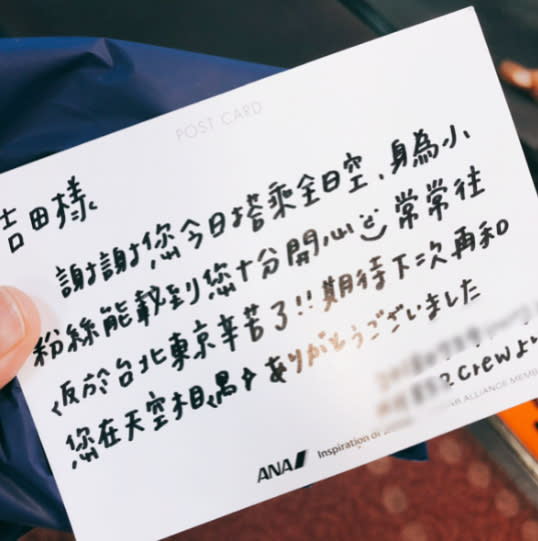 POST CARD
吉田様
謝謝您今日搭乘全日空、身為小
粉絲能載到您十分開心 常常往
返於台北東京辛苦了!!期待下次再和
您在天空相遇♪ありがとうございました
Crewより
ANA Inspiration of
STAR ALLIANCE MEMB